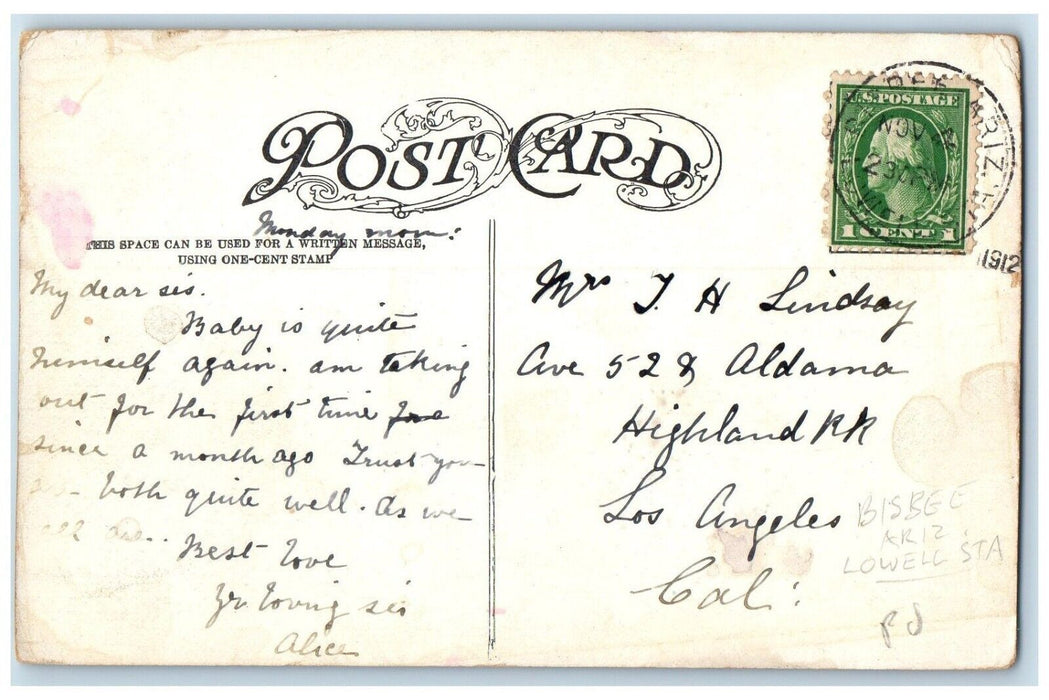 POST CARD
Monday morn:
THIS SPACE CAN BE USED FOR A WRITTEN MESSAGE,
USING ONE-CENT STAMP
My dear sis.
Baby is quite
himself again. am taking
out for the first time for
since a month ago Trust you
both quite well. As we
all are..
Best love
Yr. loving sis
Alice
U.S. POSTAGE
1 CENT 1
ARIZ.
NOV
1912
Mrs J. H Lindsay
Ave 52 & Aldama
Highland PK
Los Angeles
Cal:
BISBEE
ARIZ.
LOWELL STA